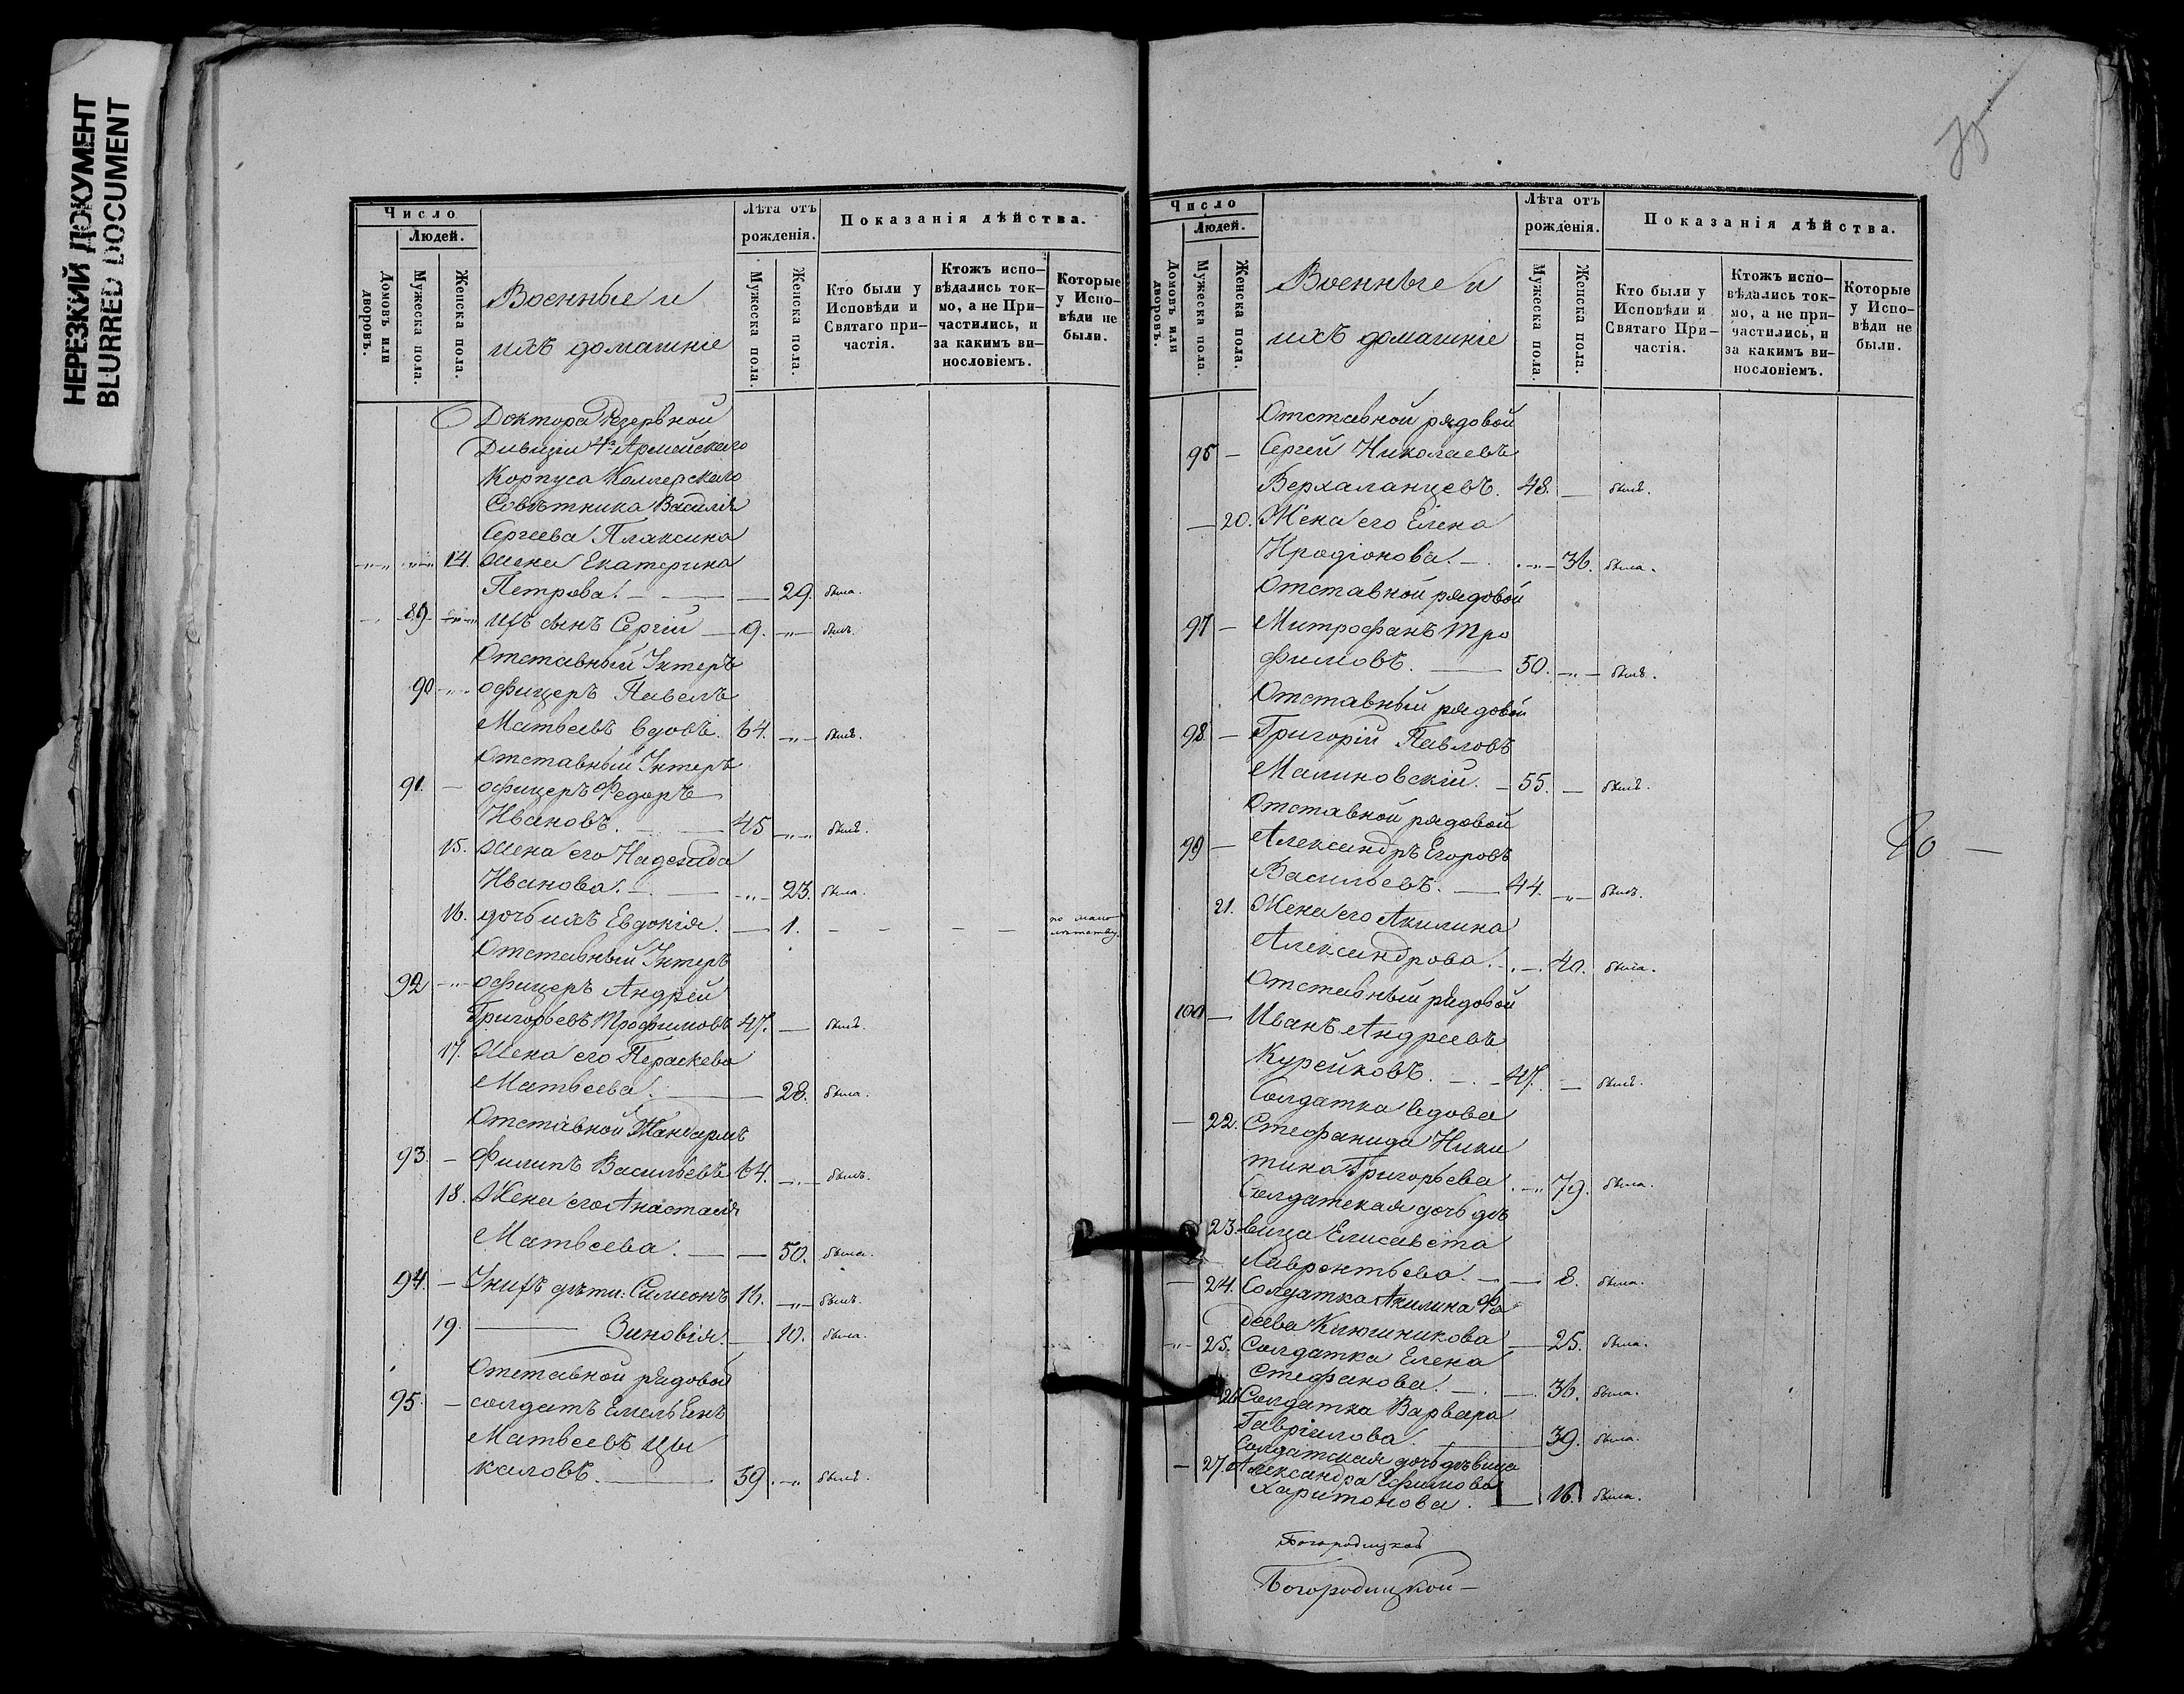 НЕРЕЗКИЙ ДОКУМЕНТ
BLURRED DOCUMENT
Число
Людей.
Домовъ или дворовъ.
Мужеска пола.
Женска пола.
Военные и
ихъ домашніе
Лѣта отъ рожденія.
Мужеска пола.
Женска пола.
Показанія дѣйства.
Кто были у Исповѣди и Святаго при-
частія.
Ктожъ испо-
вѣдались ток-
мо, а не При-
частились, и
за какимъ ви-
нословіемъ.
Которые
у Испо-
вѣди не
были.
Доктора Резервной
Дивизіи 4го Армейскаго
Корпуса Коллежскаго
Совѣтника Василія
Сергеева Плаксина
14. жена Екатерина
Петрова. — 29. была.
89 ихъ сынъ Сергій — 9. былъ.
Отставный Унтеръ
90 офицеръ Павелъ
Матвеевъ вдовъ. 64. былъ.
Отставный Унтеръ
91. — офицеръ Федоръ
Ивановъ. — 45 былъ.
15. жена его Надежда
Иванова. — 23. была.
16. дочь ихъ Евдокія. — 1. — — — — по мало-
лѣтству.
Отставный Унтеръ
92 офицеръ Андрей
Григорьевъ Трофимовъ 47. — былъ.
17. жена его Параскева
Матвеева. — 28. была.
Отставной Жандармъ
93. — Филипъ Васильевъ 64. былъ.
18. Жена его Анастасія
Матвеева. — 50. была.
94. — У нихъ дѣти: Симеонъ 16. былъ.
19. — Зиновія. — 10. была.
Отставной рядовой
95. — солдатъ Емельянъ
Матвеевъ Цы
каловъ. — 39. былъ.
75
Число
Людей.
Домовъ или дворовъ.
Мужеска пола.
Женска пола.
Военные и
ихъ домашніе
Лѣта отъ рожденія.
Мужеска пола.
Женска пола.
Показанія дѣйства.
Кто были у
Исповѣди и
Святаго При-
частія.
Ктожъ испо-
вѣдались ток-
мо, а не при-
частились, и
за какимъ ви-
нословіемъ.
Которые
у Испо-
вѣди не
были.
Отставной рядовой
96 — Сергей Николаевъ
Верхаланцевъ. 48. — былъ.
— 20. Жена его Елена
Иродіонова. — 36. была.
Отставной рядовой
97 — Митрофанъ Тро
фимовъ. — 50. былъ.
Отставный рядовой
98 — Григорій Павловъ
Малиновскій. — 55. — былъ.
Отставной рядовой
99 — Александръ Егоровъ
Васильевъ. — 44. былъ.
21. Жена его Акилина
Александрова. — 40. была.
Отставный рядовой
100 — Иванъ Андреевъ
Курейковъ. — 47. — былъ.
Солдатка вдова
— 22. Стефанида Ники
тина Григорьева — 79. была.
Солдатская дочь дѣ
23. вица Елисавета
Лаврентьева. — 8. была.
— 24. Солдатка Акилина Фа
деева Ключникова — 25. была.
25. Солдатка Елена
Стефанова. — 36. была.
26. Солдатка Варвара
Гавріилова. — 39. была.
Солдатская дочь дѣвица
— 27. Александра Ефимова
Харитонова. — 16. была.
Богородицкой
Богородицкой —